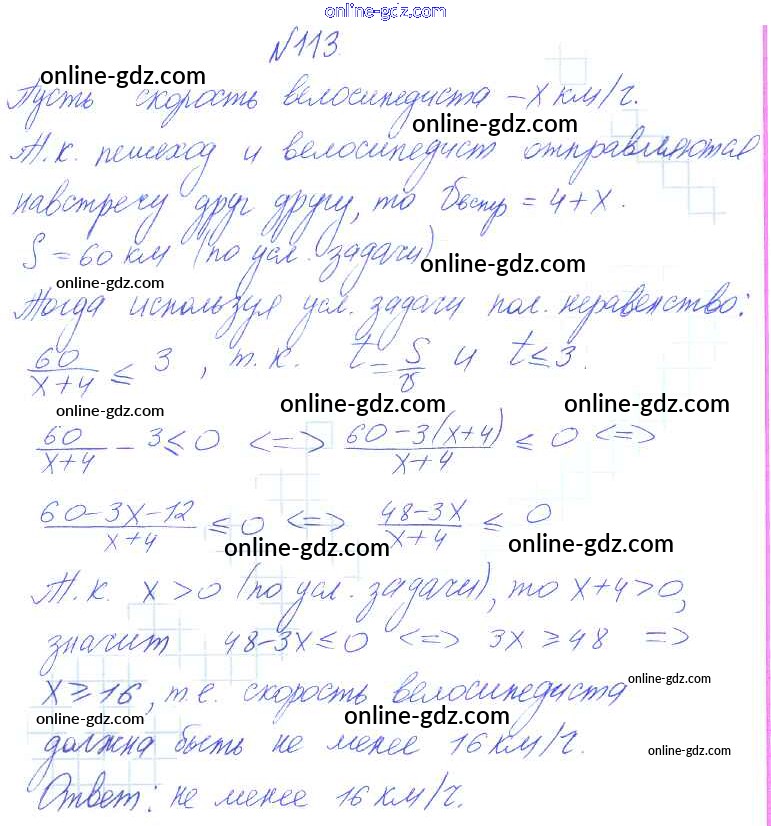 online-gdz.com
№113.
online-gdz.com
Пусть скорость велосипедиста – x км/ч.
online-gdz.com
Т.к. пешеход и велосипедист отправляются
навстречу друг другу, то υвстр = 4+x.
S = 60 км (по усл. задачи)
online-gdz.com
online-gdz.com
Тогда используя усл. задачи пол. неравенство:
60/(x+4) ≤ 3, т.к. t = S/υ и t ≤ 3.
online-gdz.com online-gdz.com online-gdz.com
60/(x+4) – 3 ≤ 0 <=> (60–3(x+4))/(x+4) ≤ 0 <=>
(60–3x–12)/(x+4) ≤ 0 <=> (48–3x)/(x+4) ≤ 0
online-gdz.com online-gdz.com
Т.к. x > 0 (по усл. задачи), то x+4 > 0,
значит 48–3x ≤ 0 <=> 3x ≥ 48 =>
online-gdz.com
x ≥ 16, т.е. скорость велосипедиста
online-gdz.com online-gdz.com
должна быть не менее 16 км/ч.
online-gdz.com
Ответ: не менее 16 км/ч.